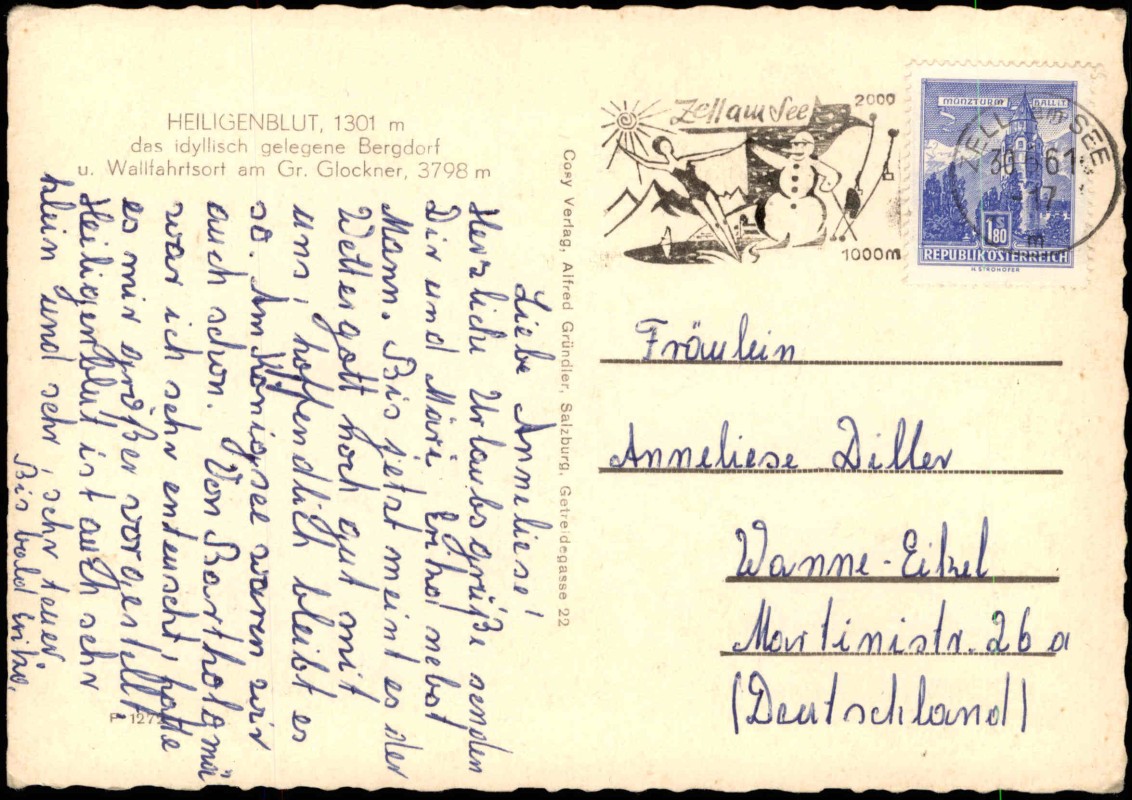 HEILIGENBLUT, 1301 m
das idyllisch gelegene Bergdorf
u. Wallfahrtsort am Gr. Glockner, 3798 m
Liebe Anneliese!
Herzliche Urlaubsgrüße senden
Dir und Märi Erika nebst
Mann. Bis jetst meint es der
Wettergott noch gut mit
uns, hoffendlich bleibt es
so. Am Königsee waren wir
auch schon. Von Bartholomä
war ich sehr enteuscht, hatte
es mir größer vorgestellt.
Heiligenblut ist auch sehr
klein und sehr, sehr teuer.
Bis bald Erika.
P 1272
Cosy Verlag, Alfred Gründler, Salzburg, Getreidegasse 22
Zell am See
2000
1000m
ZELL am SEE
61
17
m
MÜNZTURM HALL I.T.
1.80
REPUBLIK ÖSTERREICH
H. STROHOFER
Fräulein
Anneliese Diller
Wanne-Eikel
Martinistr. 26 a
(Deutschland)